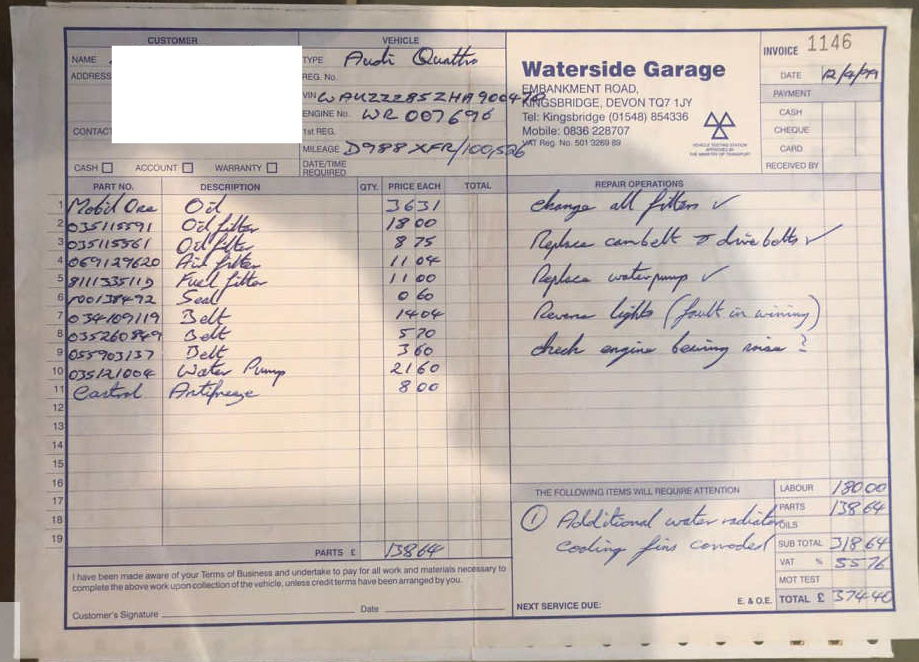 CUSTOMER
NAME
ADDRESS
CONTACT
CASH ACCOUNT WARRANTY
VEHICLE
TYPE Audi Quattro
REG. No.
VIN WAUZZZ85ZHA900478
ENGINE No. WR 007696
1st REG.
MILEAGE D988 XFR/100,526
DATE/TIME
REQUIRED
Waterside Garage
EMBANKMENT ROAD,
KINGSBRIDGE, DEVON TQ7 1JY
Tel: Kingsbridge (01548) 854336
Mobile: 0836 228707
VAT Reg. No. 501 3269 89
VEHICLE TESTING STATION
APPROVED BY
THE MINISTRY OF TRANSPORT
INVOICE 1146
DATE 12/4/99
PAYMENT
CASH
CHEQUE
CARD
RECEIVED BY
PART NO. DESCRIPTION QTY. PRICE EACH TOTAL
1 Mobil One Oil 36 31
2 035115591 Oil filter 18 00
3 035115561 Oil filter 8 75
4 069129620 Air filter 11 04
5 811133511D Fuel filter 11 00
6 Seal 0 60
7 034109119 Belt 14 04
8 035260849 Belt 5 70
9 055903137 Belt 3 60
10 035121004 Water Pump 21 60
11 Castrol Antifreeze 8 00
12
13
14
15
16
17
18
19
PARTS £ 138 64
REPAIR OPERATIONS
Change all filters ✓
Replace cambelt & drive belts ✓
Replace waterpump ✓
Reverse lights (fault in wiring)
Check engine bearing noise ?
THE FOLLOWING ITEMS WILL REQUIRE ATTENTION
① Additional water radiator
cooling fins corroded
NEXT SERVICE DUE:
E. & O.E.
LABOUR 180 00
PARTS 138 64
OILS
SUB TOTAL 318 64
VAT % 55 76
MOT TEST
TOTAL £ 374 40
I have been made aware of your Terms of Business and undertake to pay for all work and materials necessary to
complete the above work upon collection of the vehicle, unless credit terms have been arranged by you.
Customer's Signature Date